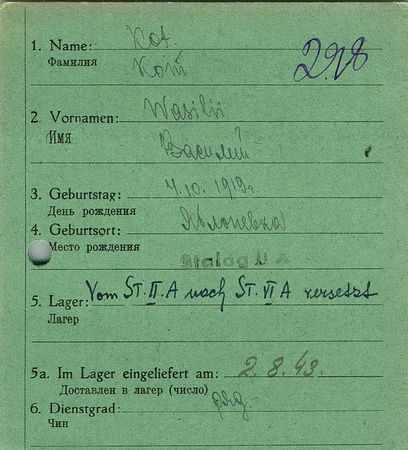 1. Name: Kot.
Фамилия Кот
298
2. Vornamen: Wasilii
Имя Василий
3. Geburtstag: 4.10.1919г.
День рождения
4. Geburtsort: Яблоневка
Место рождения
Stalag II A
5. Lager: Vom ST. II. A nach ST. VI A versetzt
Лагер
5a. Im Lager eingeliefert am: 2. 8. 43.
Доставлен в лагер (число)
6. Dienstgrad: ряд.
Чин